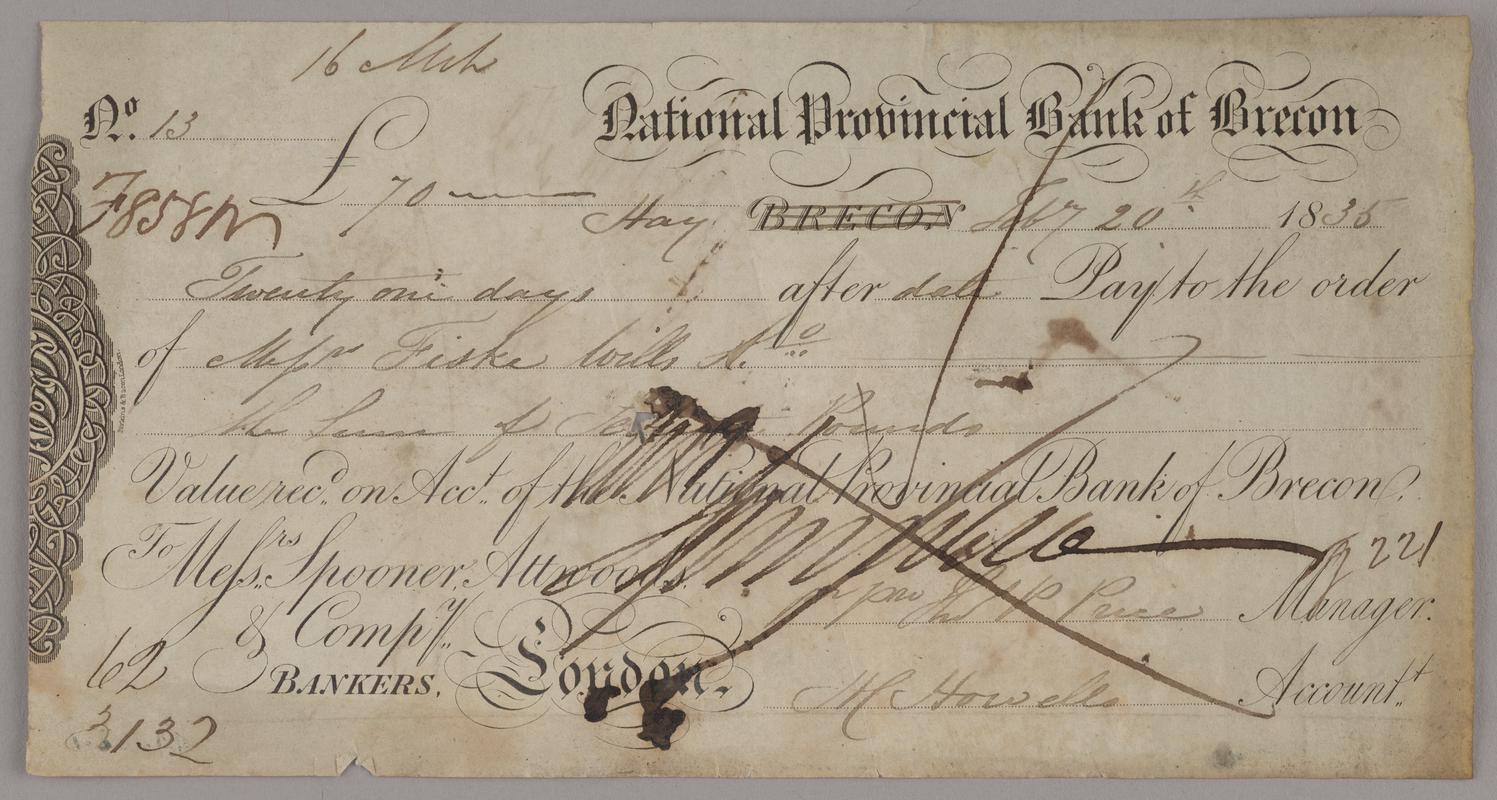 16 Mch
No. 13
National Provincial Bank of Brecon
£ 70
F858M
Hay BRECON Feby 20th 1835
Twenty one days after date Pay to the order
of Messrs Fiske Wills & Co
the Sum of Seventy Pounds
Value recd. on Acct. of the National Provincial Bank of Brecon.
To Messrs. Spooner, Attwoods
& Compy.
BANKERS, London.
221
pro Thos P Price Manager.
H Howells Accountt.
62
3132